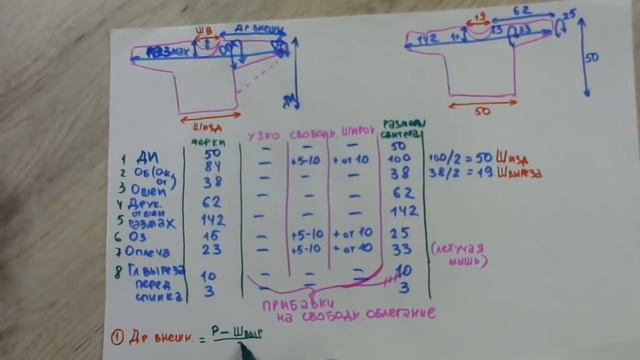 ШВ
ДР ВНЕШН
РАЗМАХ
ДИ
ШИЗД
19
62
25
142
10
33
50
50
МЕРКИ УЗКО СВОБОДН ШИРОК РАЗМЕРЫ СВИТЕРА
1 ДИ 50 – – – 50
2 ОБ(ОК, ОГ) 84 – +5-10 + ОТ 10 100 100/2 = 50 ШИЗД
3 ОШЕИ 38 – – – 38 38/2 = 19 ШВЫРЕЗА
4 ДРУК. ОТ ШЕИ 62 – – – 62
5 РАЗМАХ 142 – – – 142
6 ОЗ 15 – +5-10 + ОТ 10 25
7 ОПЛЕЧА 23 – +5-10 + ОТ 10 33 (ЛЕТУЧАЯ МЫШЬ)
8 ГЛ ВЫРЕЗА
ПЕРЕД 10 – – – 10
СПИНКА 3 – – – 3
ПРИБАВКИ
НА СВОБОДН ОБЛЕГАНИЕ
1 ДР ВНЕШН. = Р – ШВЫР